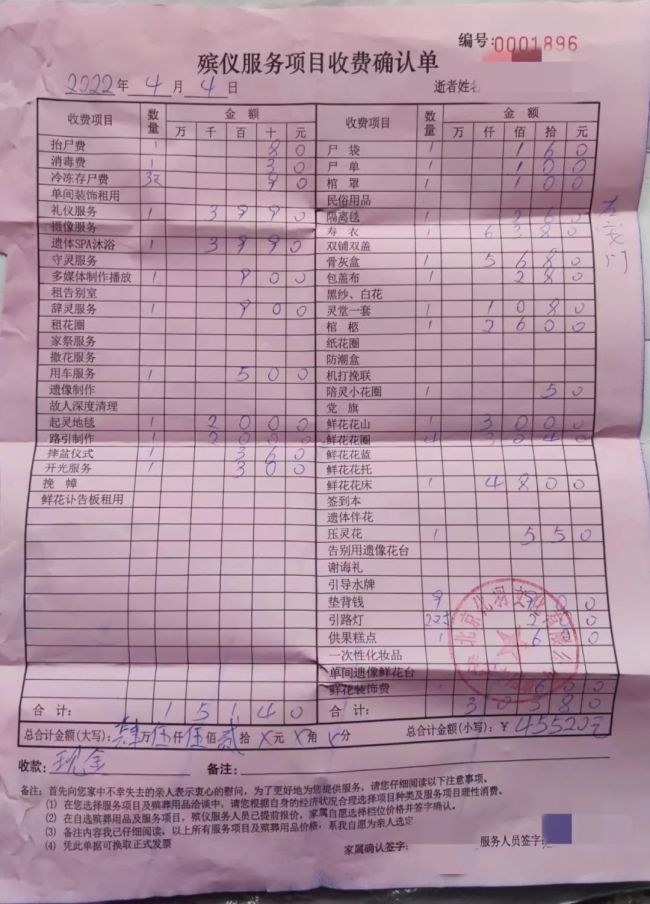 编号:0001896
殡仪服务项目收费确认单
2022年4月4日 逝者姓名
收费项目 数量 金额
万 千 百 十 元
抬尸费 1 80
消毒费 1 30
冷冻存尸费 3天 90
单间装饰租用
礼仪服务 1 3990
摄像服务
遗体SPA沐浴 1 3990
守灵服务
多媒体制作播放 1 900
租告别室
辞灵服务 1 900
租花圈
家祭服务
撒花服务
用车服务 1 500
遗像制作
故人深度清理
起灵地毯 1 2000
路引制作 1 2000
摔盆仪式 1 360
开光服务 1 300
挽幛
鲜花讣告板租用
合计: 15140
收费项目 数量 金额
万 仟 佰 拾 元
尸袋 1 160
尸单 1 100
棺罩 1 100
民俗用品
隔离毯 1 260
寿衣 1 6380
双铺双盖
骨灰盒 1 5680
包盖布 1 280
黑纱、白花
灵堂一套 1 1080
棺柩 1 2600
纸花圈
防潮盒
机打挽联
陪灵小花圈 1 50
党旗
鲜花花山 1 3000
鲜花花圈 4 3040
鲜花花蓝
鲜花花托
鲜花花床 1 4800
签到本
遗体伴花
压灵花 1 550
告别用遗像花台
谢诲礼
引导水牌
垫背钱 9 900
引路灯 200
供果糕点 1 600
一次性化妆品
单间遗像鲜花台
鲜花装饰费 1 600
合计: 30380
总合计金额(大写):肆万伍仟伍佰贰拾X元X角X分 总合计金额(小写):¥45520元
收款:现金 备注:
备注:首先向您家中不幸失去的亲人表示衷心的慰问,为了更好地为您提供服务,请您仔细阅读以下注意事项。
(1)在您选择服务项目及殡葬用品洽谈中,请您根据自身的经济状况合理选择项目种类及服务项目理性消费。
(2)在自选殡葬用品及服务项目,殡仪服务人员已提前报价,家属自愿选择档位价格并签字确认。
(3)备注内容我已仔细阅读,以上所有服务项目及殡葬用品价格,系我自愿为亲人选定
(4)凭此单据可换取正式发票
家属确认签字: 服务人员签字: